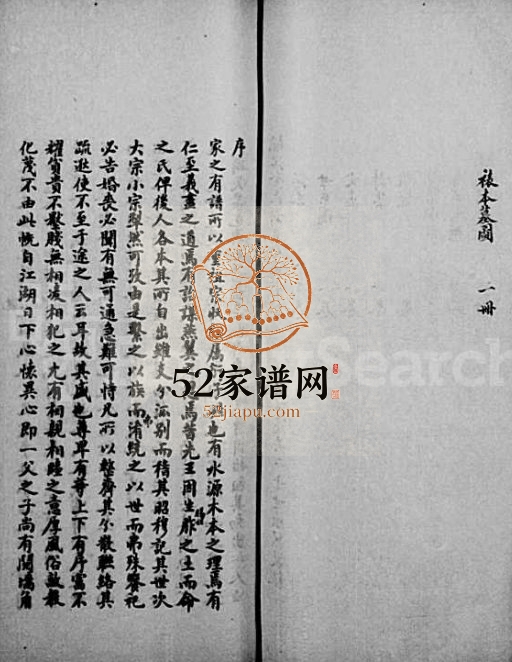 裱本墓图 一冊
序
家之有譜所以重祖宗收也有水源木本之理焉有
仁至義盡之道焉有焉昔先王因生胙之土而命
之氏俾後人各本其所自出雖支分派別而稽其昭穆記其世次
大宗小宗犁然可攷由是繫之以族而淆統之以世而弗殊祭祀
必告婚喪必聞有無可通急難可恃凡所以整齊其分散聯絡其
疏逖使不至于途之人云耳故其盛也尊卑有等上下有序富不
耀貧貴不壓賤無相凌相犯之尤有相親相睦之意厚風俗敦教
化茂不由此慨自江湖日下心懷異心即一父之子尚有鬩墻角
52家谱网
52jiapu.com
Search